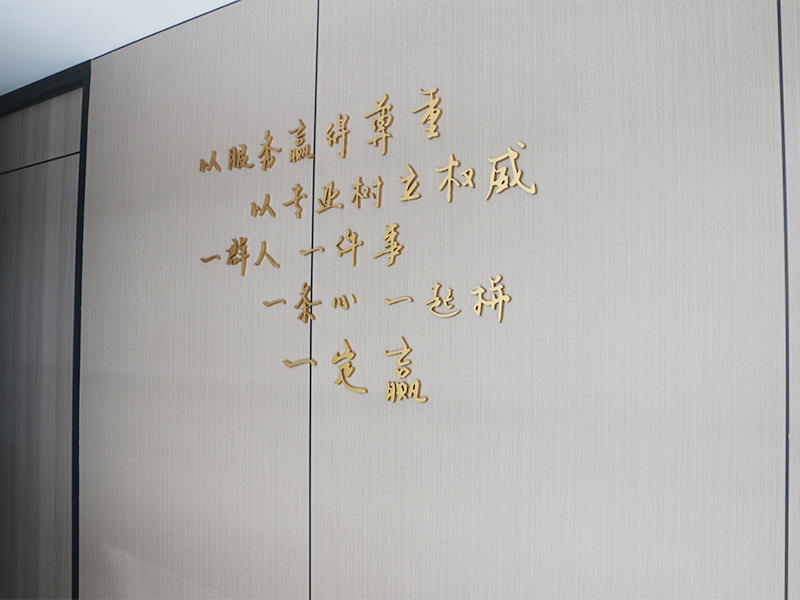 以服务赢得尊重
以专业树立权威
一群人 一件事
一条心 一起拼
一定赢